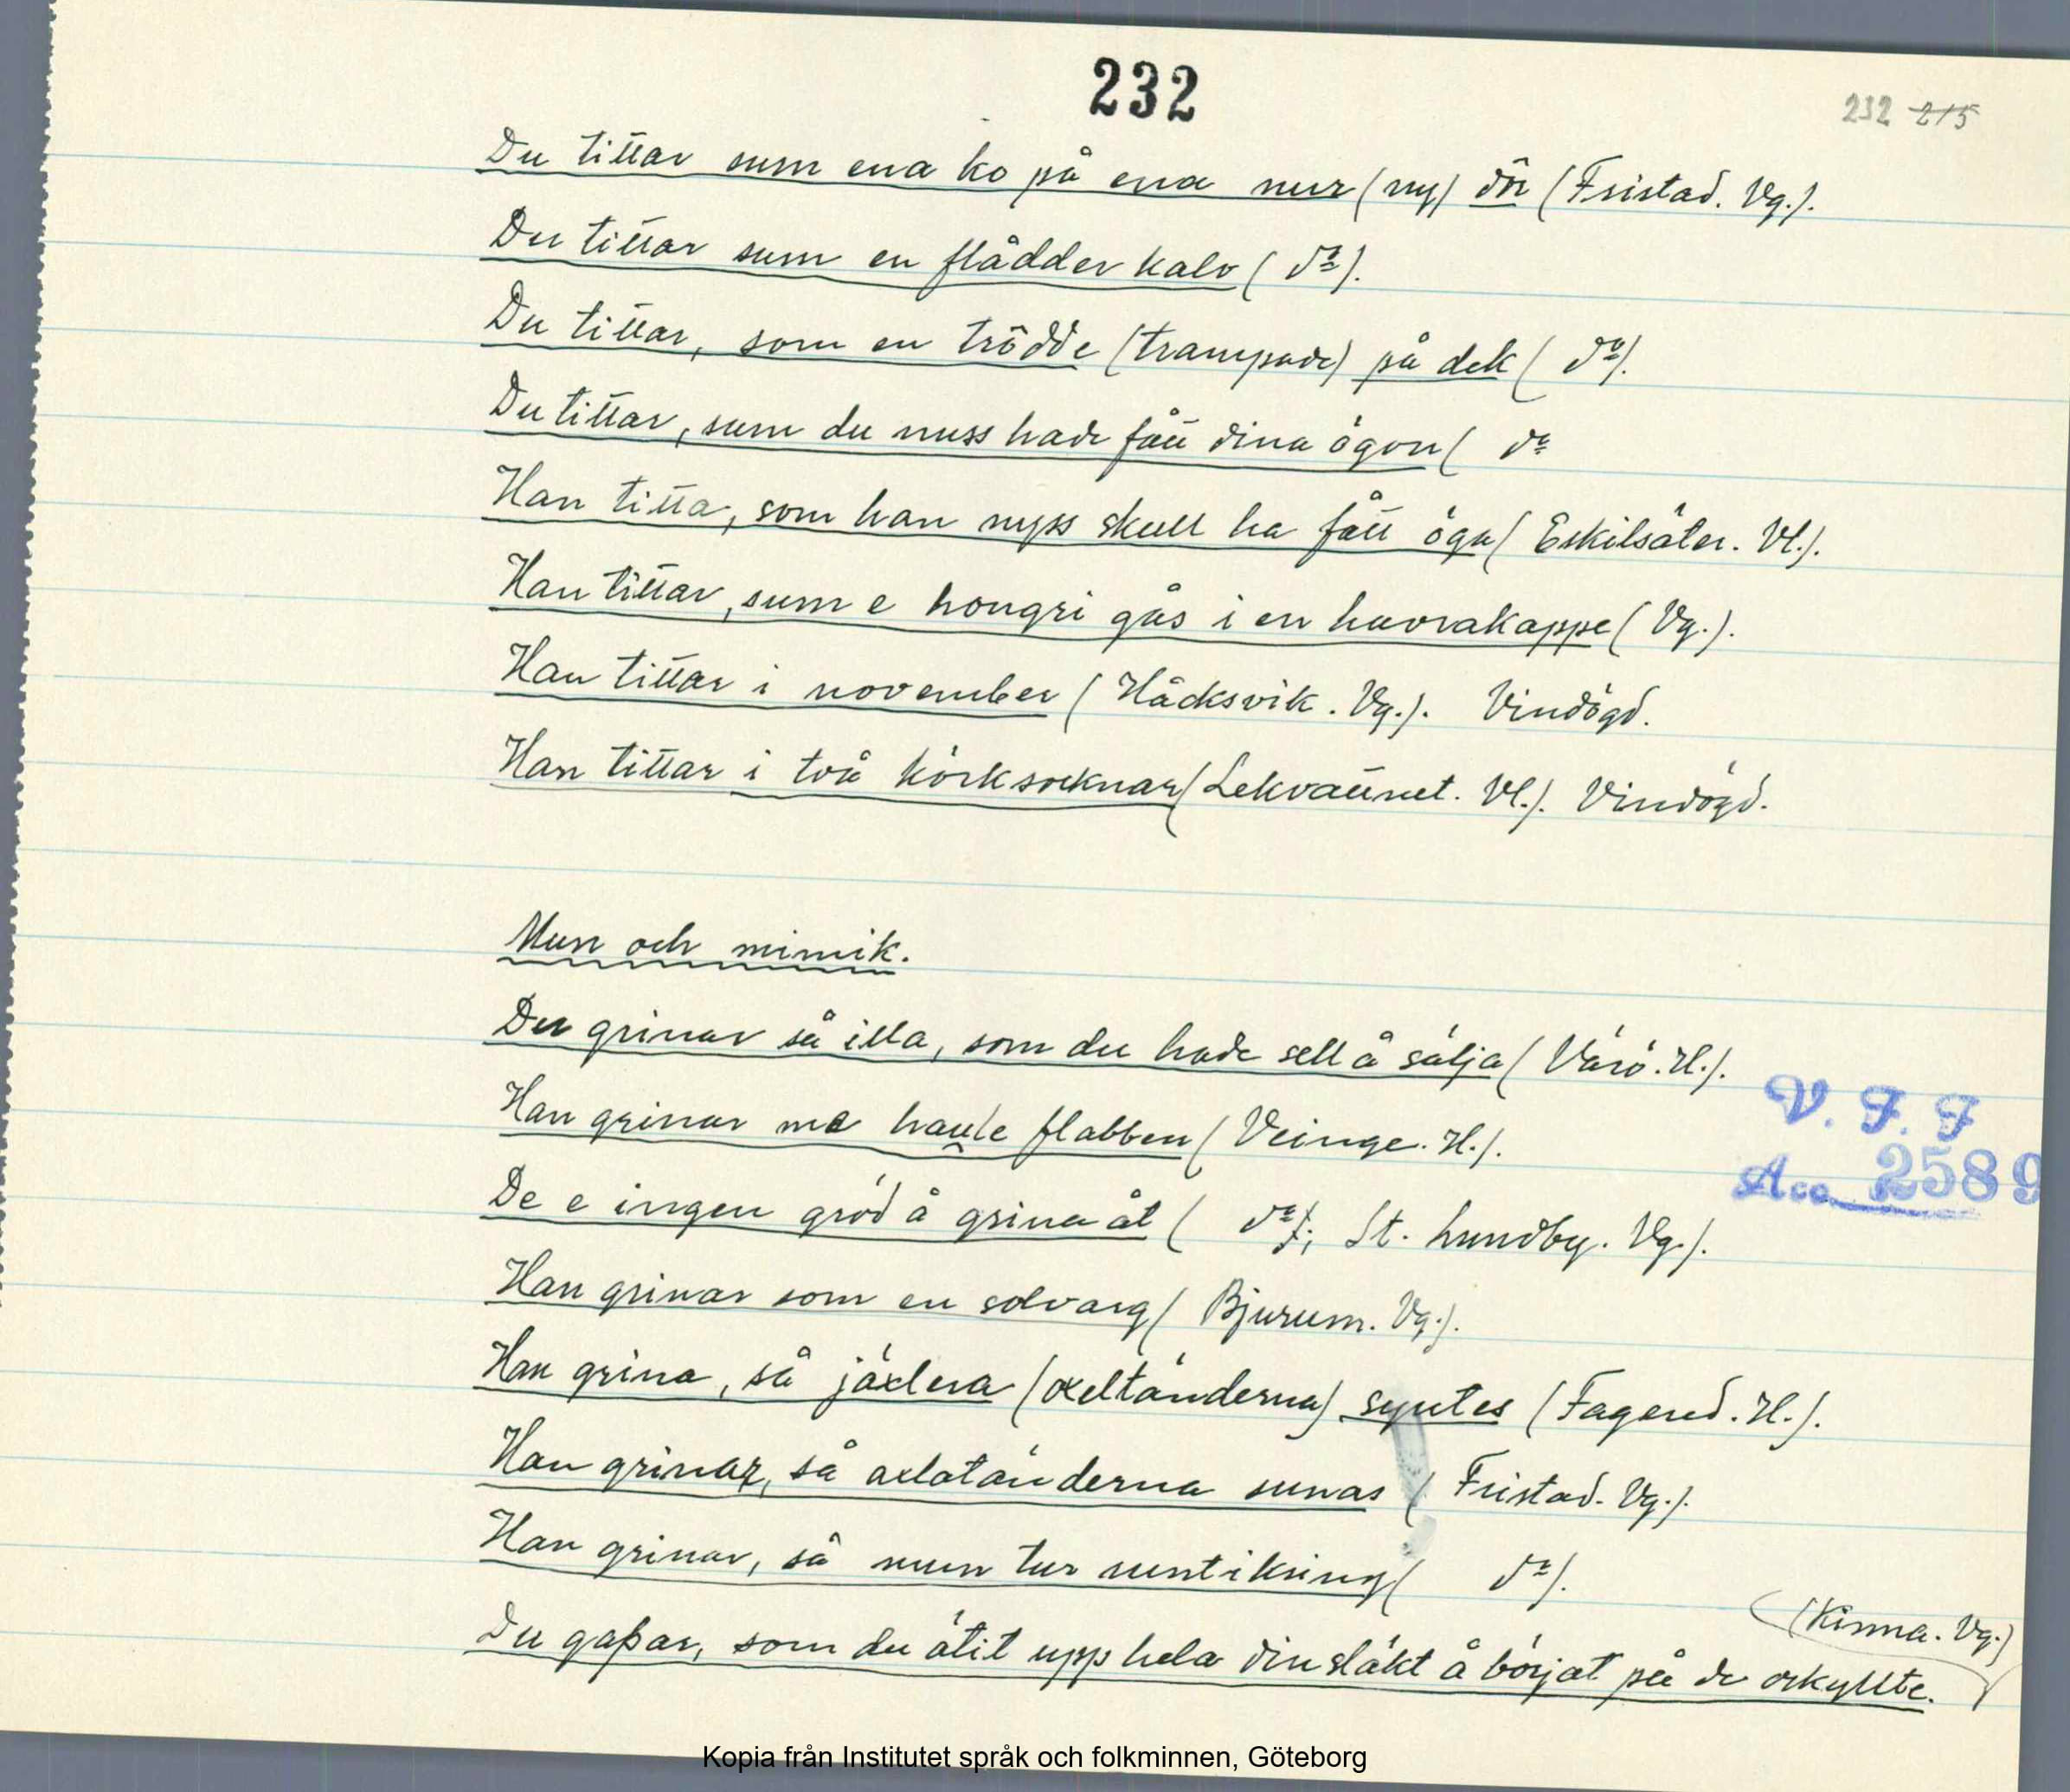 232
232 215
Du tittar sum ena ko på ena nur (ny) dör (Fristad. Vg.).
Du tittar sum en flådder kalv ( do).
Du tittar, som en trödde (trampade) på dek ( do).
Du tittar, sum du nuss hade fått dina ögon ( do
Han titta, som han nyss skull ha fått öga ( Eskilsäter. Vl.).
Han tittar, sum e hongri gås i en havrakappe ( Vg.).
Han tittar i november ( Håcksvik. Vg.). Vindögd.
Han tittar i två körksocknar ( Lekvattnet. Vl.). Vindögd.
Mun och mimik.
Du grinar så illa, som du hade sell å sälja ( Värö. H.).
Han grinar me haule flabben ( Veinge. H.).
De e ingen gröd å grina åt ( do; St. Lundby. Vg.).
Han grinar som en solvarg ( Bjurum. Vg.).
Han grina, så jäxlera (oxeltänderna) syntes (Fagered. H.).
Han grinar, så axlatänderna sunas ( Fristad. Vg.).
Han grinar, så mun tur runtikring ( do).
(Kinna. Vg.)
Du gapar, som du ätit upp hela din släkt å börjat på de oskyllte.
V. F. F
Acc. 2589
Kopia från Institutet språk och folkminnen, Göteborg